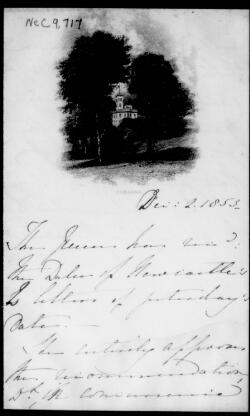 NeC 9,717
OSBORNE.
Dec: 2. 1853.
The Queen has rec.d
the Duke of Newcastle's
2 letters of yesterday's
date. —
She entirely approves
the recommendation